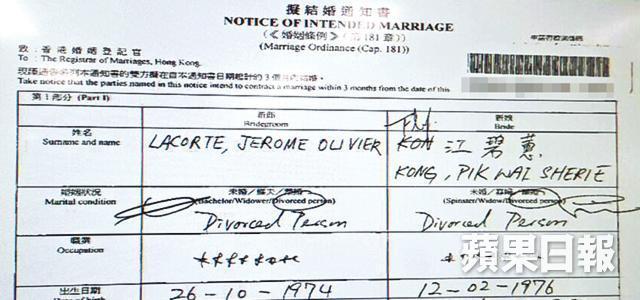 擬結婚通知書
NOTICE OF INTENDED MARRIAGE
(《婚姻條例》(第181章))
(Marriage Ordinance (Cap. 181))
致：香港婚姻登記官
To : The Registrar of Marriages, Hong Kong.
Take notice that the parties named in this notice intend to contract a marriage within 3 months from the date of this
第1部分 (Part I)
新郎
Bridegroom
新娘
Bride
姓名
Surname and name
LACORTE, JEROME OLIVIER
KOH 江碧蕙
KONG, PIK WAI SHERIE
婚姻狀況
Marital condition
(Bachelor/Widower/Divorced person)
Divorced Person
(Spinster/Widow/Divorced person)
Divorced Person
職業
Occupation
*******
*******
出生日期
26-10-1974
12-02-1976
蘋果日報